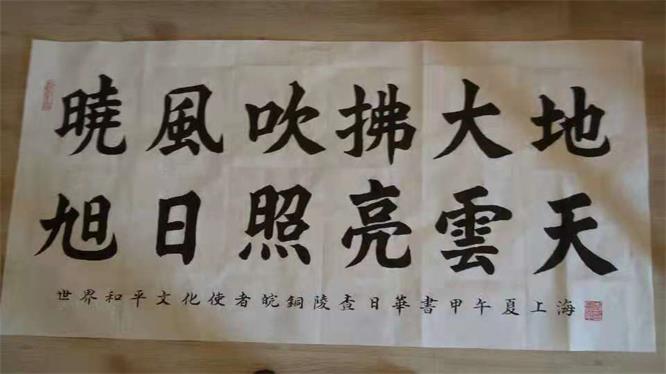 暁風吹拂大地
旭日照亮雲天
世界和平文化使者皖銅陵查日華書甲午夏上海